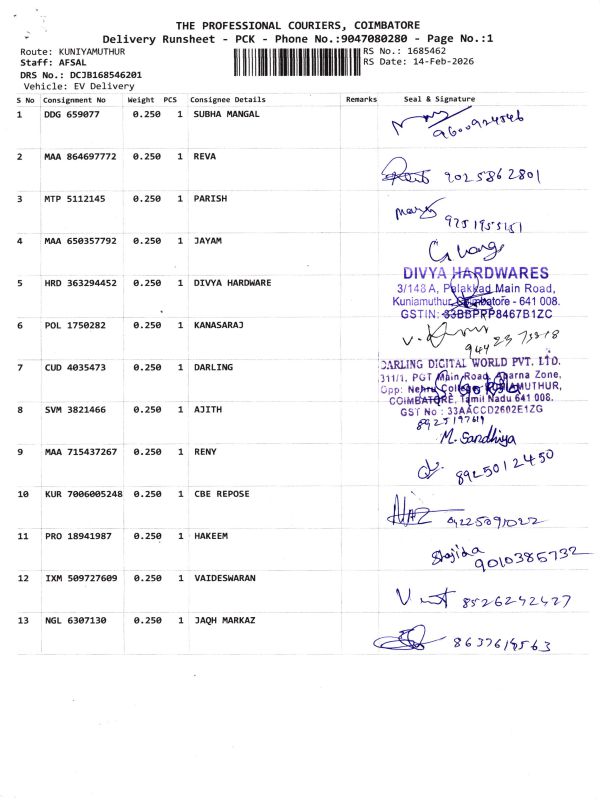 THE PROFESSIONAL COURIERS, COIMBATORE
Delivery Runsheet - PCK - Phone No.:9047080280 - Page No.:1
Route: KUNIYAMUTHUR RS No.: 1685462
Staff: AFSAL RS Date: 14-Feb-2026
DRS No.: DCJB168546201
Vehicle: EV Delivery
S No Consignment No Weight PCS Consignee Details Remarks Seal & Signature
1 DDG 659077 0.250 1 SUBHA MANGAL
9600924546
2 MAA 864697772 0.250 1 REVA
9025862801
3 MTP 5112145 0.250 1 PARISH
9751955151
4 MAA 650357792 0.250 1 JAYAM
DIVYA HARDWARES
5 HRD 363294452 0.250 1 DIVYA HARDWARE
3/148 A, Palakkad Main Road,
Kuniamuthur, Coimbatore - 641 008.
GSTIN: 33BBPRP8467B1ZC
6 POL 1750282 0.250 1 KANASARAJ
944
7 CUD 4035473 0.250 1 DARLING
DARLING DIGITAL WORLD PVT. LTD.
311/1, PGT Main Road, Zone,
Opp: Nehru College KUNIAMUTHUR,
COIMBATORE. Tamil Nadu 641 008.
GST No : 33AACCD2602E1ZG
8 SVM 3821466 0.250 1 AJITH
8925197619
M. Sandhiya
9 MAA 715437267 0.250 1 RENY
8925012450
10 KUR 7006005248 0.250 1 CBE REPOSE
11 PRO 18941987 0.250 1 HAKEEM
Shajida
9010385732
12 IXM 509727609 0.250 1 VAIDESWARAN
8526242427
13 NGL 6307130 0.250 1 JAQH MARKAZ
8637618563